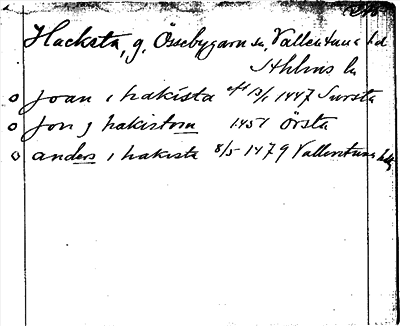 Hacksta, g. Össebygarn sn, Vallentuna hd
Sthlms län
o joan i hakista eft 13/1 1447 Sursta
o jon j hakistom 1451 Örsta
o anders i hakista 8/5 1479 Vallentuna